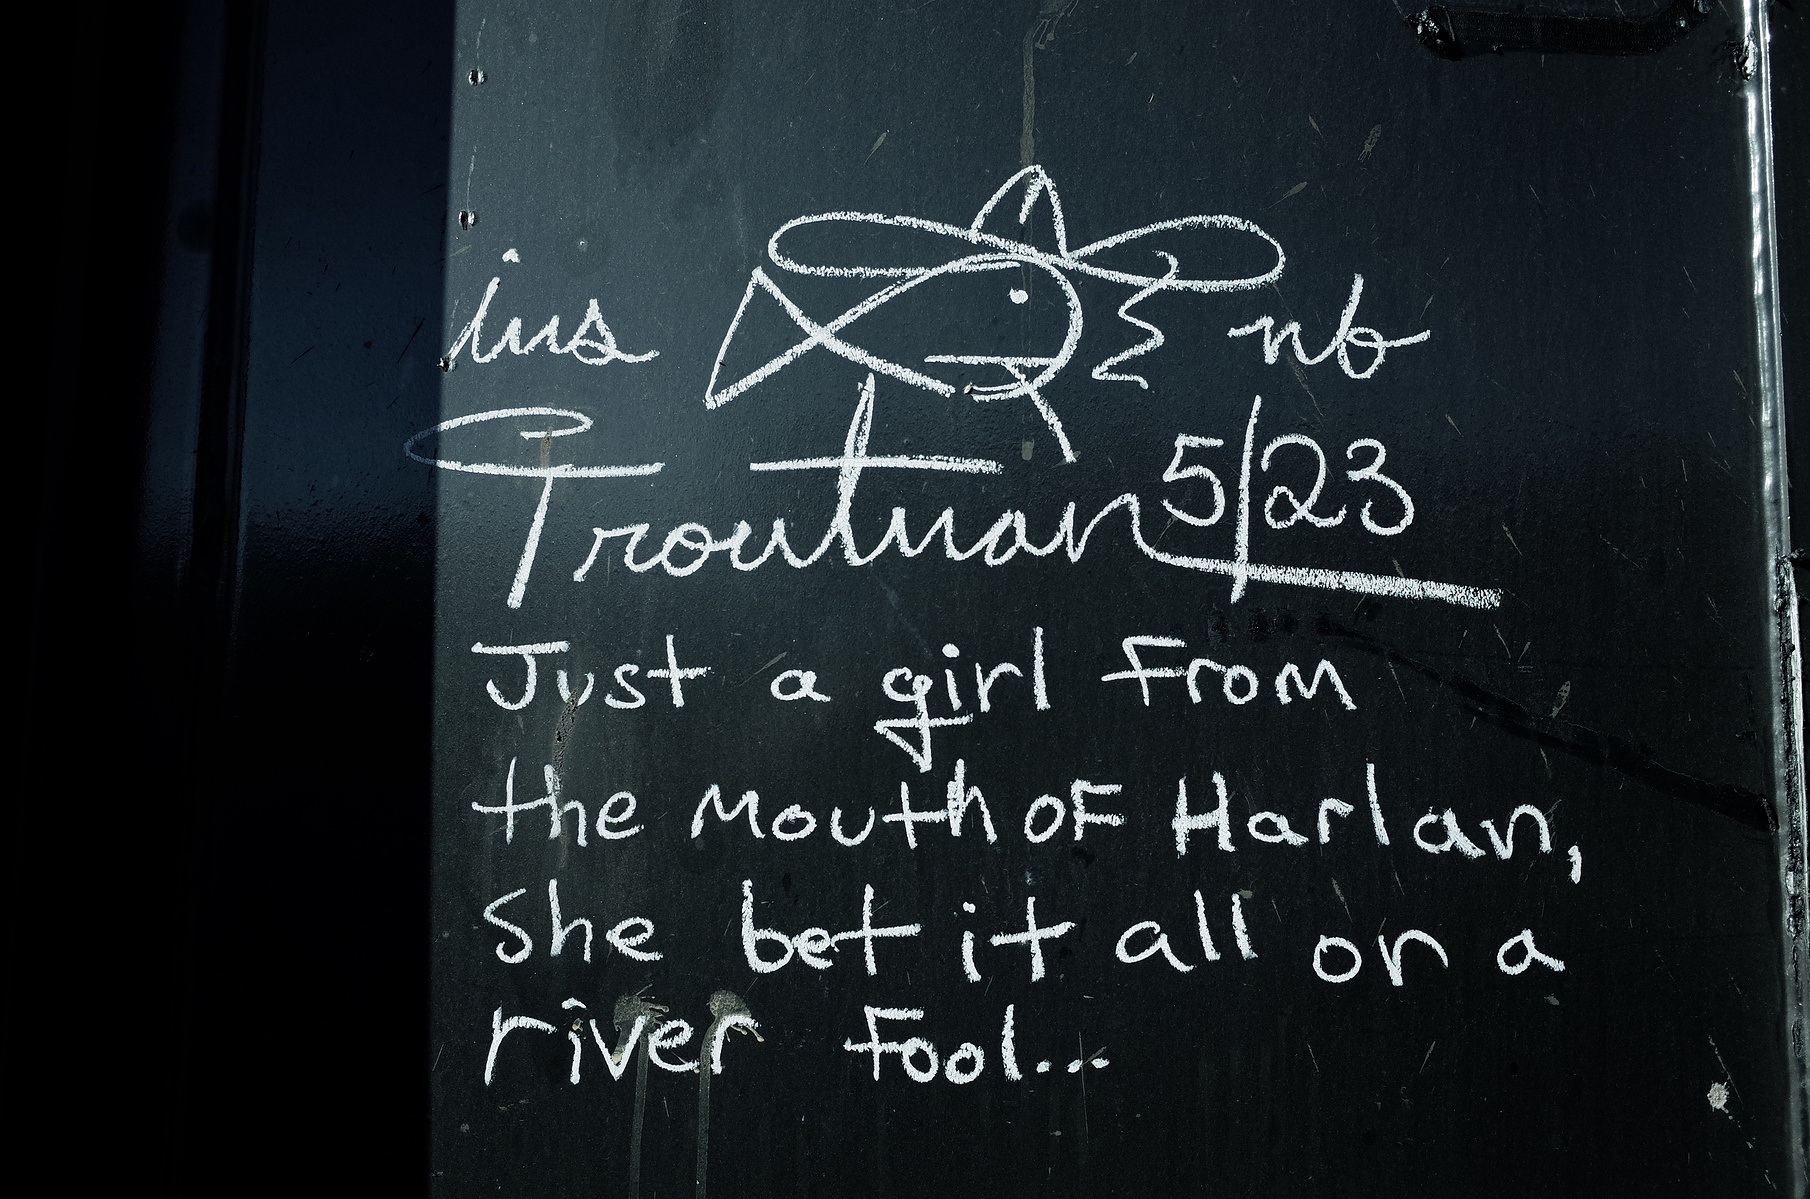 ius nb
Troutman 5/23
Just a girl from
the mouth of Harlan,
She bet it all on a
river fool...